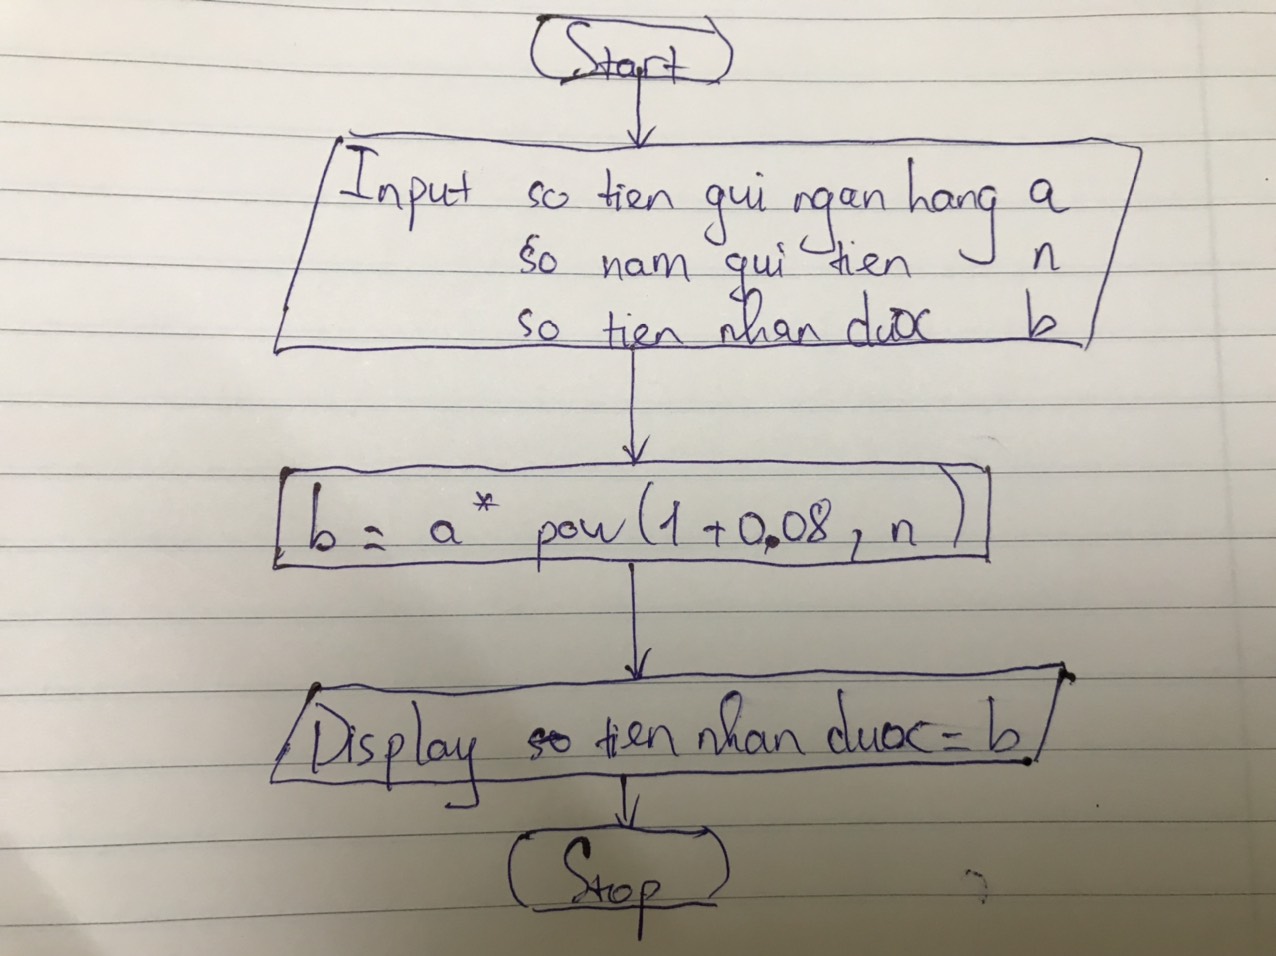 Start
Input so tien gui ngan hang a
so nam gui tien n
so tien nhan duoc b
b = a * pow (1 + 0.08, n)
Display so tien nhan duoc = b
Stop